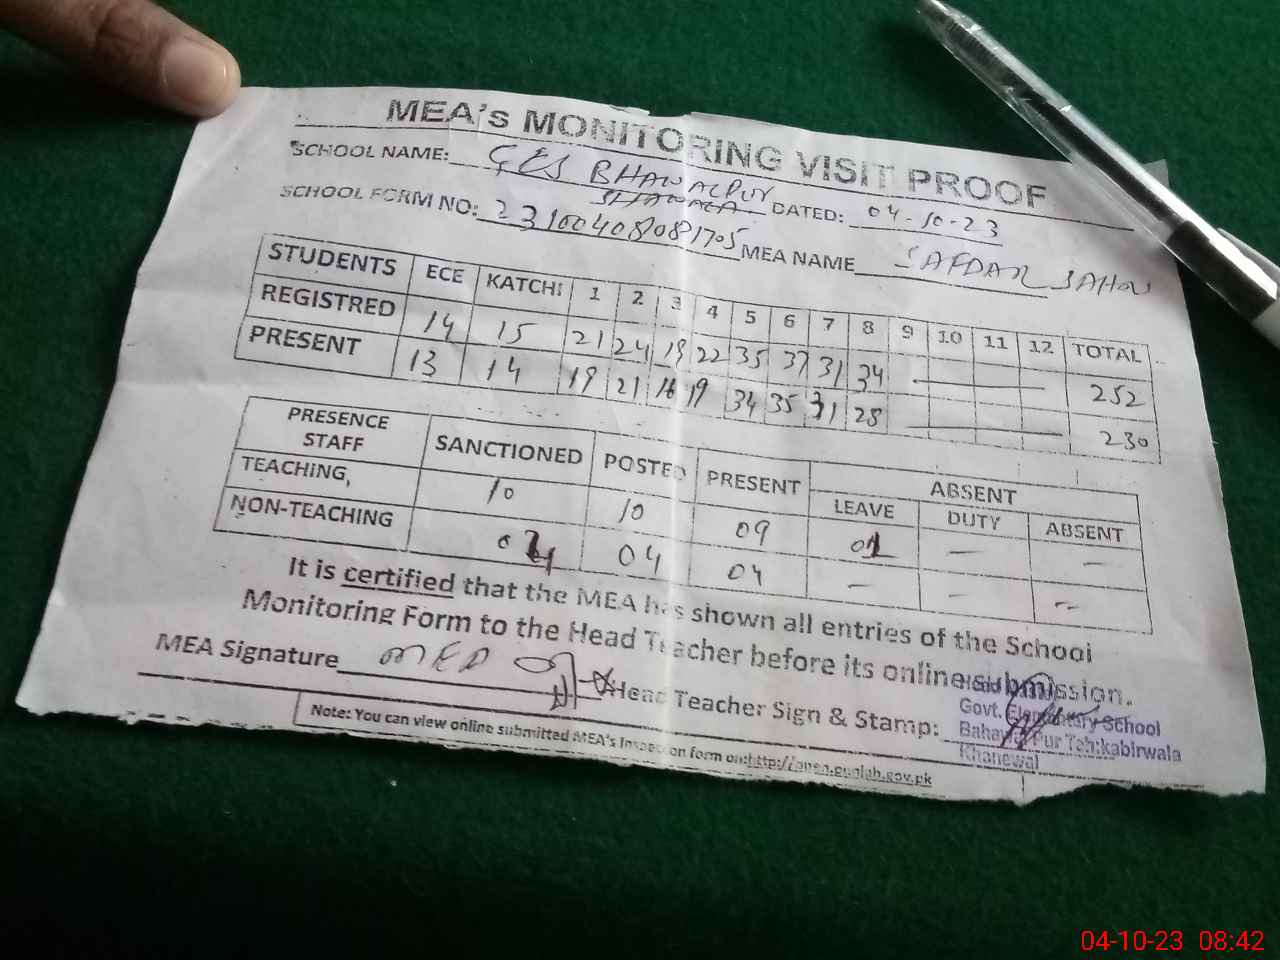 MEA's MONITORING VISIT PROOF
SCHOOL NAME: GES BHAWALPUR
SHAWALA DATED: 04-10-23
SCHOOL FORM NO: 23100408081705 MEA NAME SAFDAR
STUDENTS ECE KATCHI 1 2 3 4 5 6 7 8 9 10 11 12 TOTAL
REGISTRED 14 15 21 24 19 22 35 37 31 34 — 252
PRESENT 13 14 19 21 16 19 34 35 31 28 — 230
PRESENCE STAFF SANCTIONED POSTED PRESENT ABSENT
LEAVE DUTY ABSENT
TEACHING, 10 10 09 01 — —
NON-TEACHING 04 04 04 — — —
It is certified that the MEA has shown all entries of the School
Monitoring Form to the Head Teacher before its online submission.
MEA Signature Head Teacher Sign & Stamp:
Govt. Elementary School
Bahawal Pur Teh:kabirwala
Khanewal
Note: You can view online submitted MEA's Inspection form on:http://open.punjab.gov.pk
04-10-23 08:42